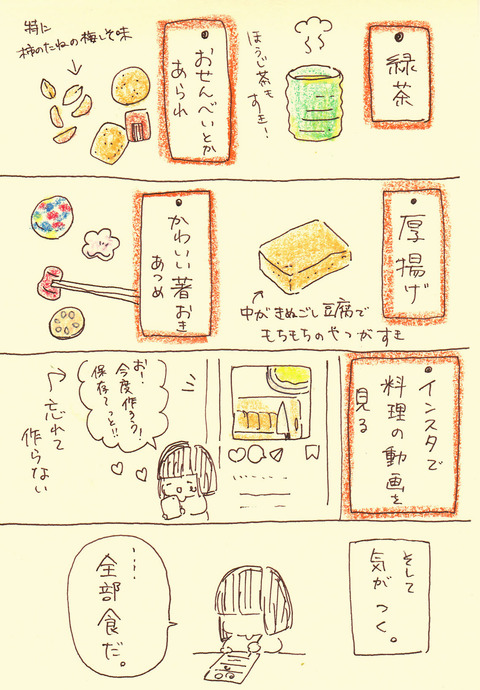 緑茶
ほうじ茶も
すき！
おせんべいとか
あられ
特に
柿のたねの梅しそ味
厚揚げ
中がきぬごし豆腐で
もちもちのやつがすき
かわいい箸おき
あつめ
インスタで
料理の動画を
見る
お！
今度作ろう！
保存てっと!!
忘れて
作らない
そして
気がつく。
……
全部食だ。